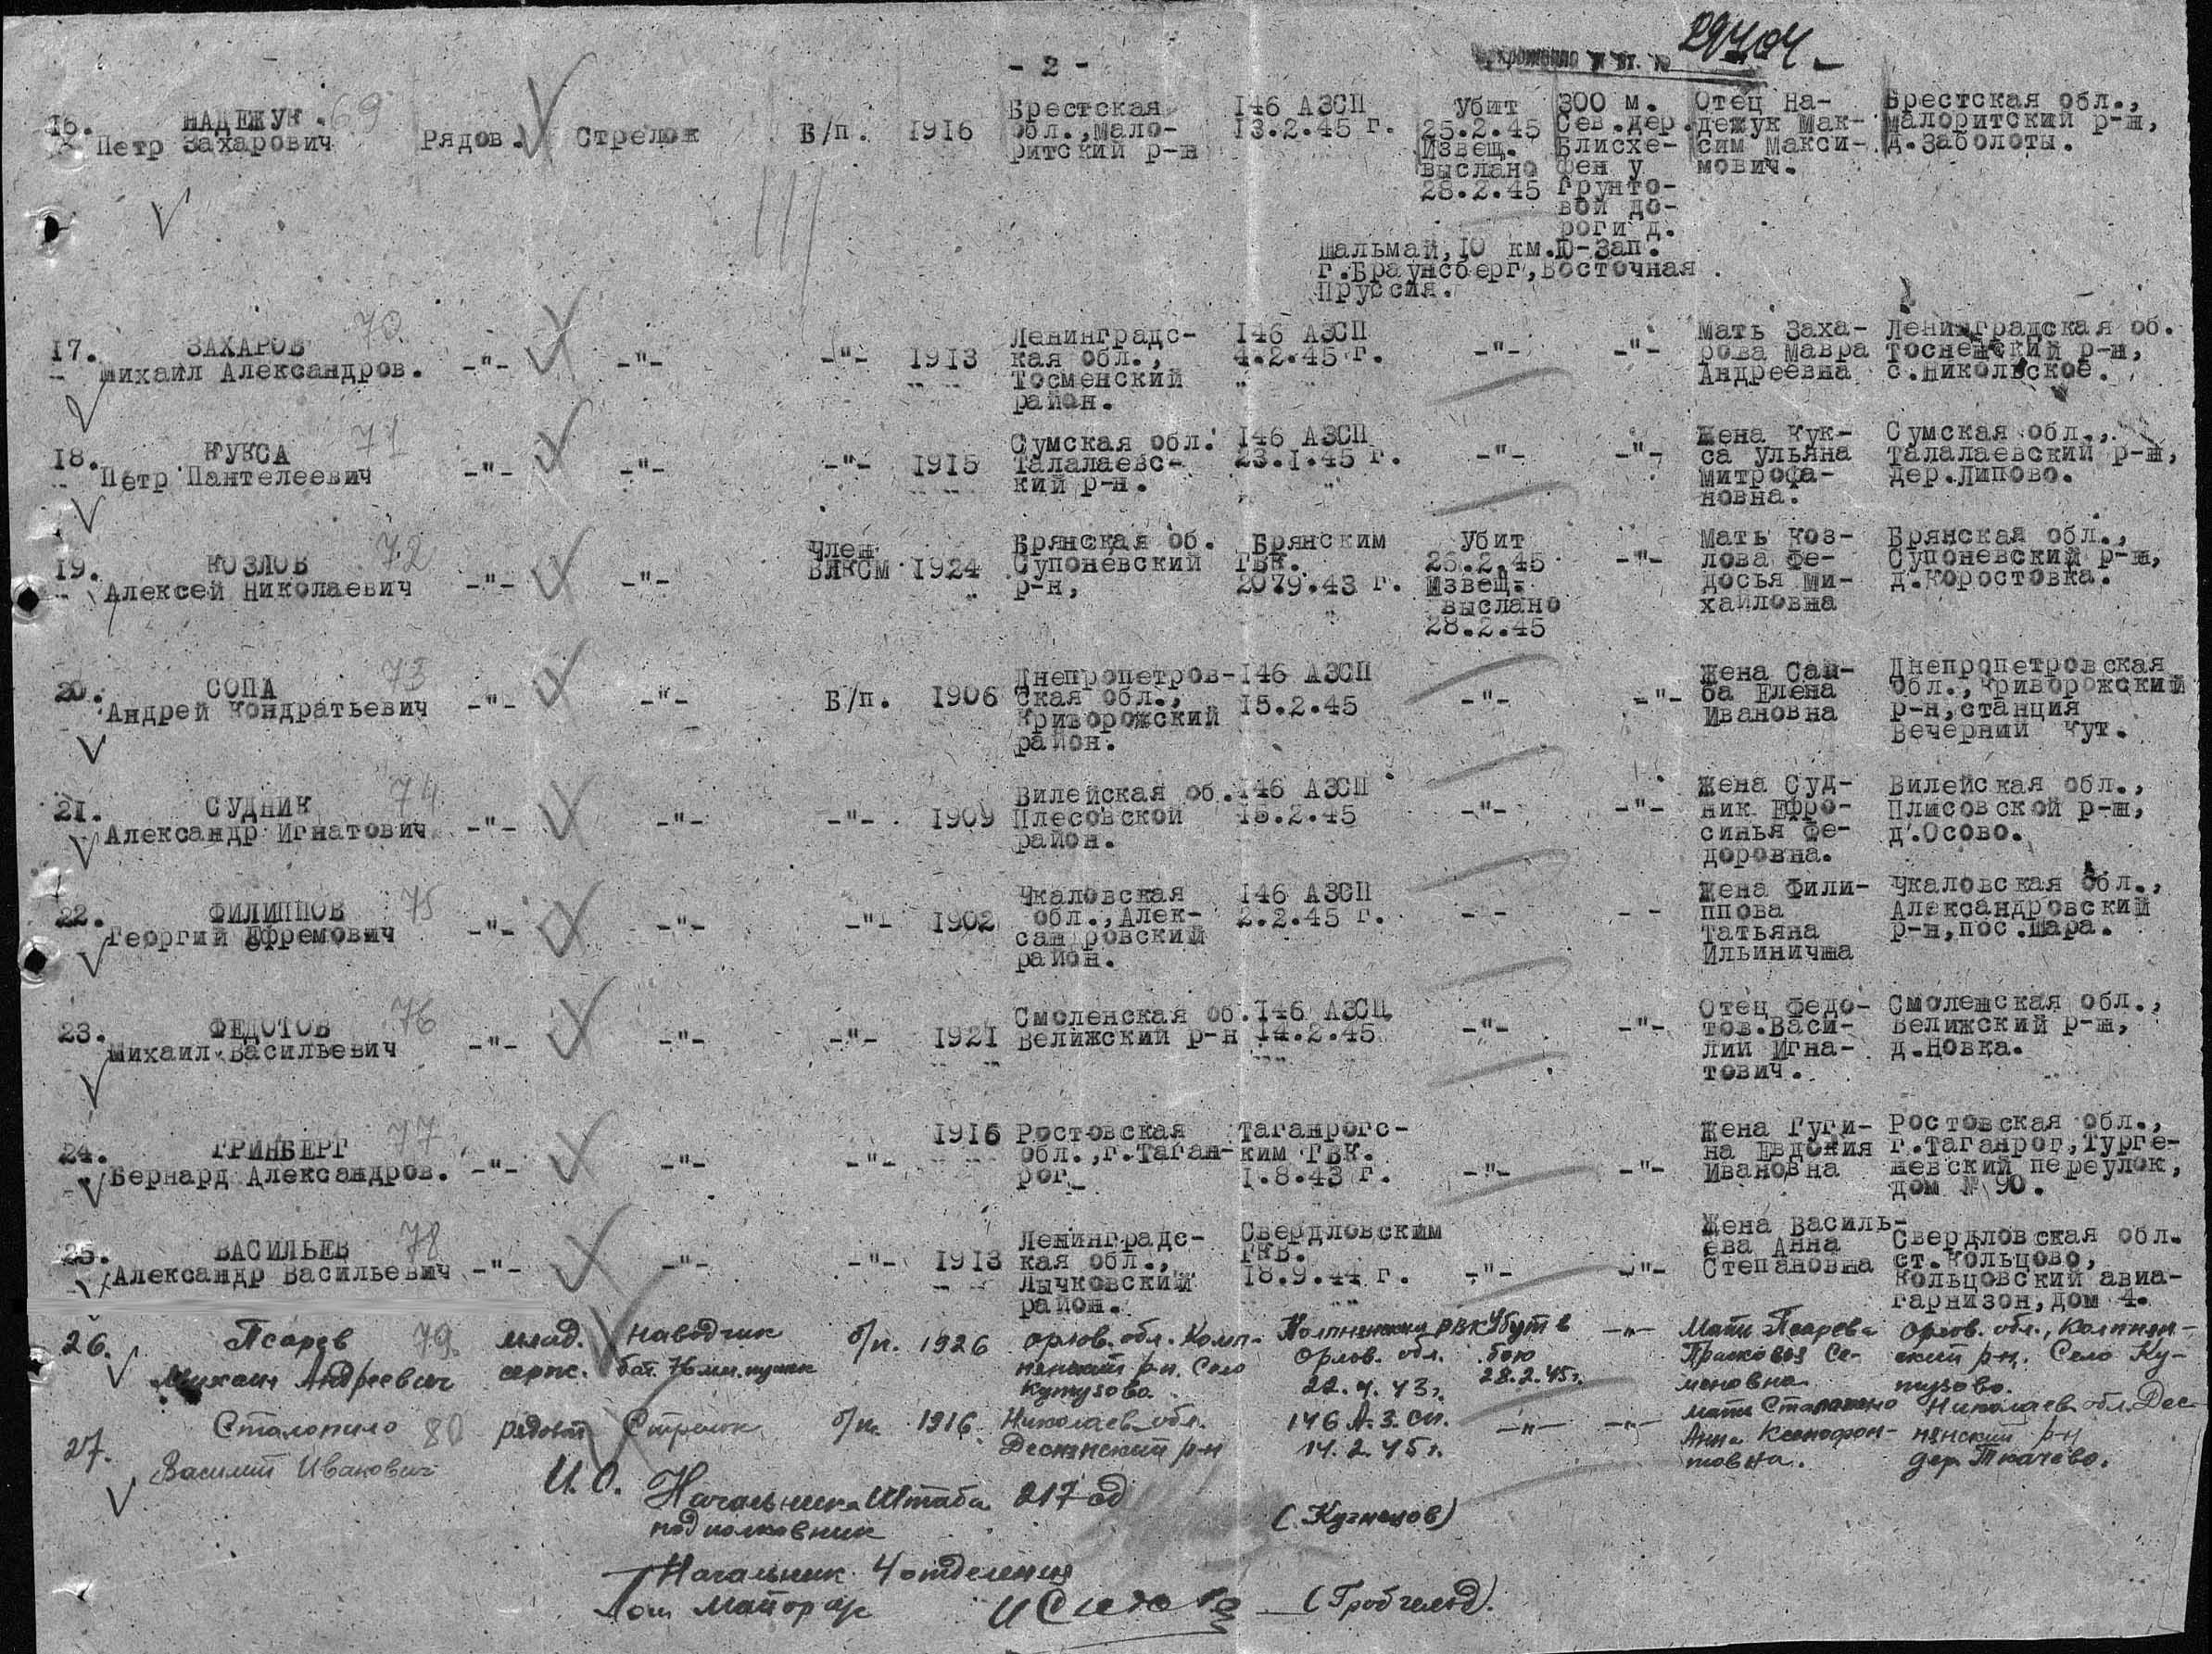 29404
- 2 -
16. НАДЕЖУК 69 Петр Захарович Рядов. Стрелок Б/п. 1916 Брестская обл., Мало- ритский р-н 146 АЗСП 13.2.45 г. Убит 25.2.45 Извещ. выслано 28.2.45 300 м. Сев.дер. Блисхе- фен у грунто- вой до- роги д. Шальмай, 10 км.Ю-Зап. г.Браунсберг, Восточная Пруссия. Отец На- дежук Мак- сим Макси- мович. Брестская обл., Малоритский р-н, д.Заболоты.
17. ЗАХАРОВ 70 Михаил Александров. -"- -"- -"- 1913 Ленинградс- кая обл., Тосменский район. 146 АЗСП 4.2.45 г. -"- -"- Мать Заха- рова Мавра Андреевна Ленинградская об. Тосненский р-н, с.Никольское.
18. КУКСА 71 Петр Пантелеевич -"- -"- -"- 1915 Сумская обл. Талалаевс- кий р-н. 146 АЗСП 23.1.45 г. -"- -"- Жена Кук- са Ульяна Митрофа- новна. Сумская обл., Талалаевский р-н, дер.Липово.
19. КОЗЛОВ 72 Алексей Николаевич -"- -"- Член ВЛКСМ 1924 Брянская об. Супоневский р-н, Брянским ГВК. 2079.43 г. Убит 26.2.45 Извещ. выслано 28.2.45 -"- Мать Коз- лова Фе- досья Ми- хайловна Брянская обл., Супоневский р-н, д.Коростовка.
20. СОПА 73 Андрей Кондратьевич -"- -"- Б/п. 1906 Днепропетров- ская обл., Криворожский район. 146 АЗСП 15.2.45 -"- -"- Жена Сап- ба Елена Ивановна Днепропетровская обл., Криворожский р-н, станция Вечерний Кут.
21. СУДНИК 74 Александр Игнатович -"- -"- -"- 1909 Вилейская об. Плесовской район. 146 АЗСП 15.2.45 -"- -"- Жена Суд- ник Ефро- синья Фе- доровна. Вилейская обл., Плисовской р-н, д.Осово.
22. ФИЛИППОВ 75 Георгий Ефремович -"- -"- -"- 1902 Чкаловская обл., Алек- сандровский район. 146 АЗСП 2.2.45 г. - - - - Жена Фили- ппова Татьяна Ильинична Чкаловская обл., Александровский р-н, пос.Шара.
23. ФЕДОТОВ 76 Михаил Васильевич -"- -"- -"- 1921 Смоленская об. Велижский р-н 146 АЗСП 14.2.45 -"- -"- Отец Федо- тов Васи- лий Игна- тович. Смоленская обл., Велижский р-н, д.Новка.
24. ГРИНБЕРГ 77 Бернард Александров. -"- -"- -"- 1916 Ростовская обл., г.Таган- рог Таганрогс- ким ГВК. 1.8.43 г. -"- -"- Жена Гуги- на Евдокия Ивановна Ростовская обл., г.Таганрог, Турге- невский переулок, дом № 90.
25. ВАСИЛЬЕВ 78 Александр Васильевич -"- -"- -"- 1913 Ленинградс- кая обл., Лычковский район. Свердловским ГКВ. 18.9.44 г. -"- -"- Жена Василь- ева Анна Степановна Свердловская обл. ст.Кольцово, Кольцовский авиа- гарнизон, дом 4.
26. Псарев 79 Михаил Андреевич млад. серж. наводчик бат. 76 мм. пушек б/п. 1926 Орлов. обл. Колп- нянский р-н. Село Кутузово. Колпнянским РВК Орлов. обл. 22.4.43 г. Убит в бою 28.2.45 г. -"- Мать Псарева Прасковья Се- меновна Орлов. обл., Колпнян- ский р-н. Село Ку- тузово.
27. 80 Василий Иванович рядовой Стрелок б/п. 1916 Николаев. обл. Деснянский р-н 146 А.З.СП. 14.2.45 г. -"- -"- Мать Анна Ксенофон- товна. Николаев. обл. Дес- нянский р-н дер. Ткачево.
И.О. Начальника Штаба 217 сд
подполковник (Кузнецов)
Начальник 4 отделения
майор а/с